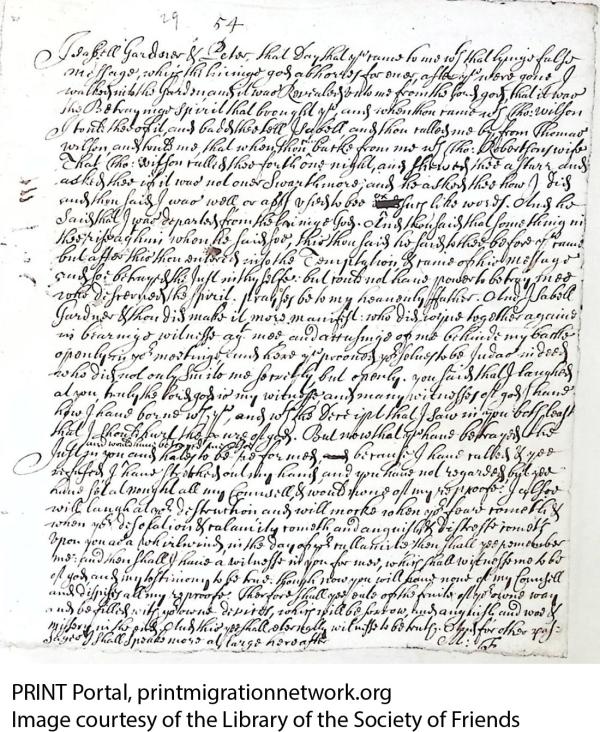 29 54
Isabell Gardner & Peter, that Day that ye came to me wth that lyinge false
message, which the livinge god abhorres for ever, after ye were gone I
walked into the Garden and it was Revealed unto me from the lord god, that it was
the Betrayinge Spirit that brought ye, and when thou came wth Tho: Wilson
I tould thee of it, and badd thee tell Isabell and thou called me by from Thomas
Wilson, and tould me, that when thou came backe from me wth Tho: Robertsons wife
That Tho: Wilson called thee forth one night, and shewed thee a starr, and
asked thee if it was not over Swarthmore; and he asked thee how I did
and thou said I was well, or as I used to bee such like words. And he
said that I was departed from the livinge God. And thou said that something in
thee rise against him when he said soe, this thou said he said to thee before ye came
but after this thou entered into the Temptation & came of his message
and soe betrayed the Just in thy selfe: but could not have power to betray mee
who discerned the spirit. praises be to my heavenly father. And Isabell
Gardner & thou did make it more manifest: who did joyne together againe
in bearinge witnesse agt mee and accusinge of me behinde my backe
openly in yor meetinge, and here ye prooved yor selves to be Judas indeed
who did not only smite me secretly but openly. you said that I laughed
at you truly the lord god is my witnesse and many witnesses of god I have
how I have borne wth ye, and wth the Deceipt that I saw in you both least
that I should hurt the pure of god. But now that ye have betrayed the
Just in you and hates to be reformed because I have called & yee
refused, I have stretched out my hand and you have not regarded but yee
have set at nought all my Counsell & would none of my reproofe: I also
will laugh at yor destruction and will mocke when yor feare cometh &
when yor desolation & calamity cometh and anguish & distresse cometh
upon you as a whirlwind, in the day of yor callamitie then shall yee remember
me: and then shall I have a witnesse in you for mee, which shall witnesse me to be
of god, and my testimony to be true. though now you will have none of my Counsell
and dispises all my reproofe. Therfore shall yee eate of the fruite of yor owne way
and be filled with yor owne devices, which will be sorrow, and anguish, and woe &
misery in the end. And this yee shall eternally witnesse to be truth.
I shall speake more at large hereafter M: ff
PRINT Portal, printmigrationnetwork.org
Image courtesy of the Library of the Society of Friends